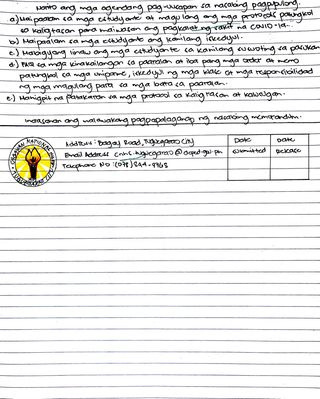 Narito ang mga agendang pag-uusapan sa nasabing pagpupulong.
a) Maipaalam sa mga estudyante at magulang ang mga protocols patungkol
sa kaligtasan para maiwasan ang pagkalat ng sakit na COVID-19.
b) Maipaalam sa mga estudyante ang kanilang iskedyul.
c) Mabigyang linaw ang mga estudyante sa kanilang
d) Iba sa mga kinakailangan sa paaralan at iba pang mga order at memo
patungkol sa mga uniporme, iskedyul ng mga klase at mga responsibilidad
ng mga magulang para sa mga bata sa paaralan.
e) Mahigpit na patakaran sa mga protocol sa kaligtasan at kalusugan.
Inaasahan ang malawakang pagpapalaganap ng nasabing memorandum.
Address: Bagay Road, Tuguegarao City
Email Address
Telephone No
Date
submitted
Date
Release